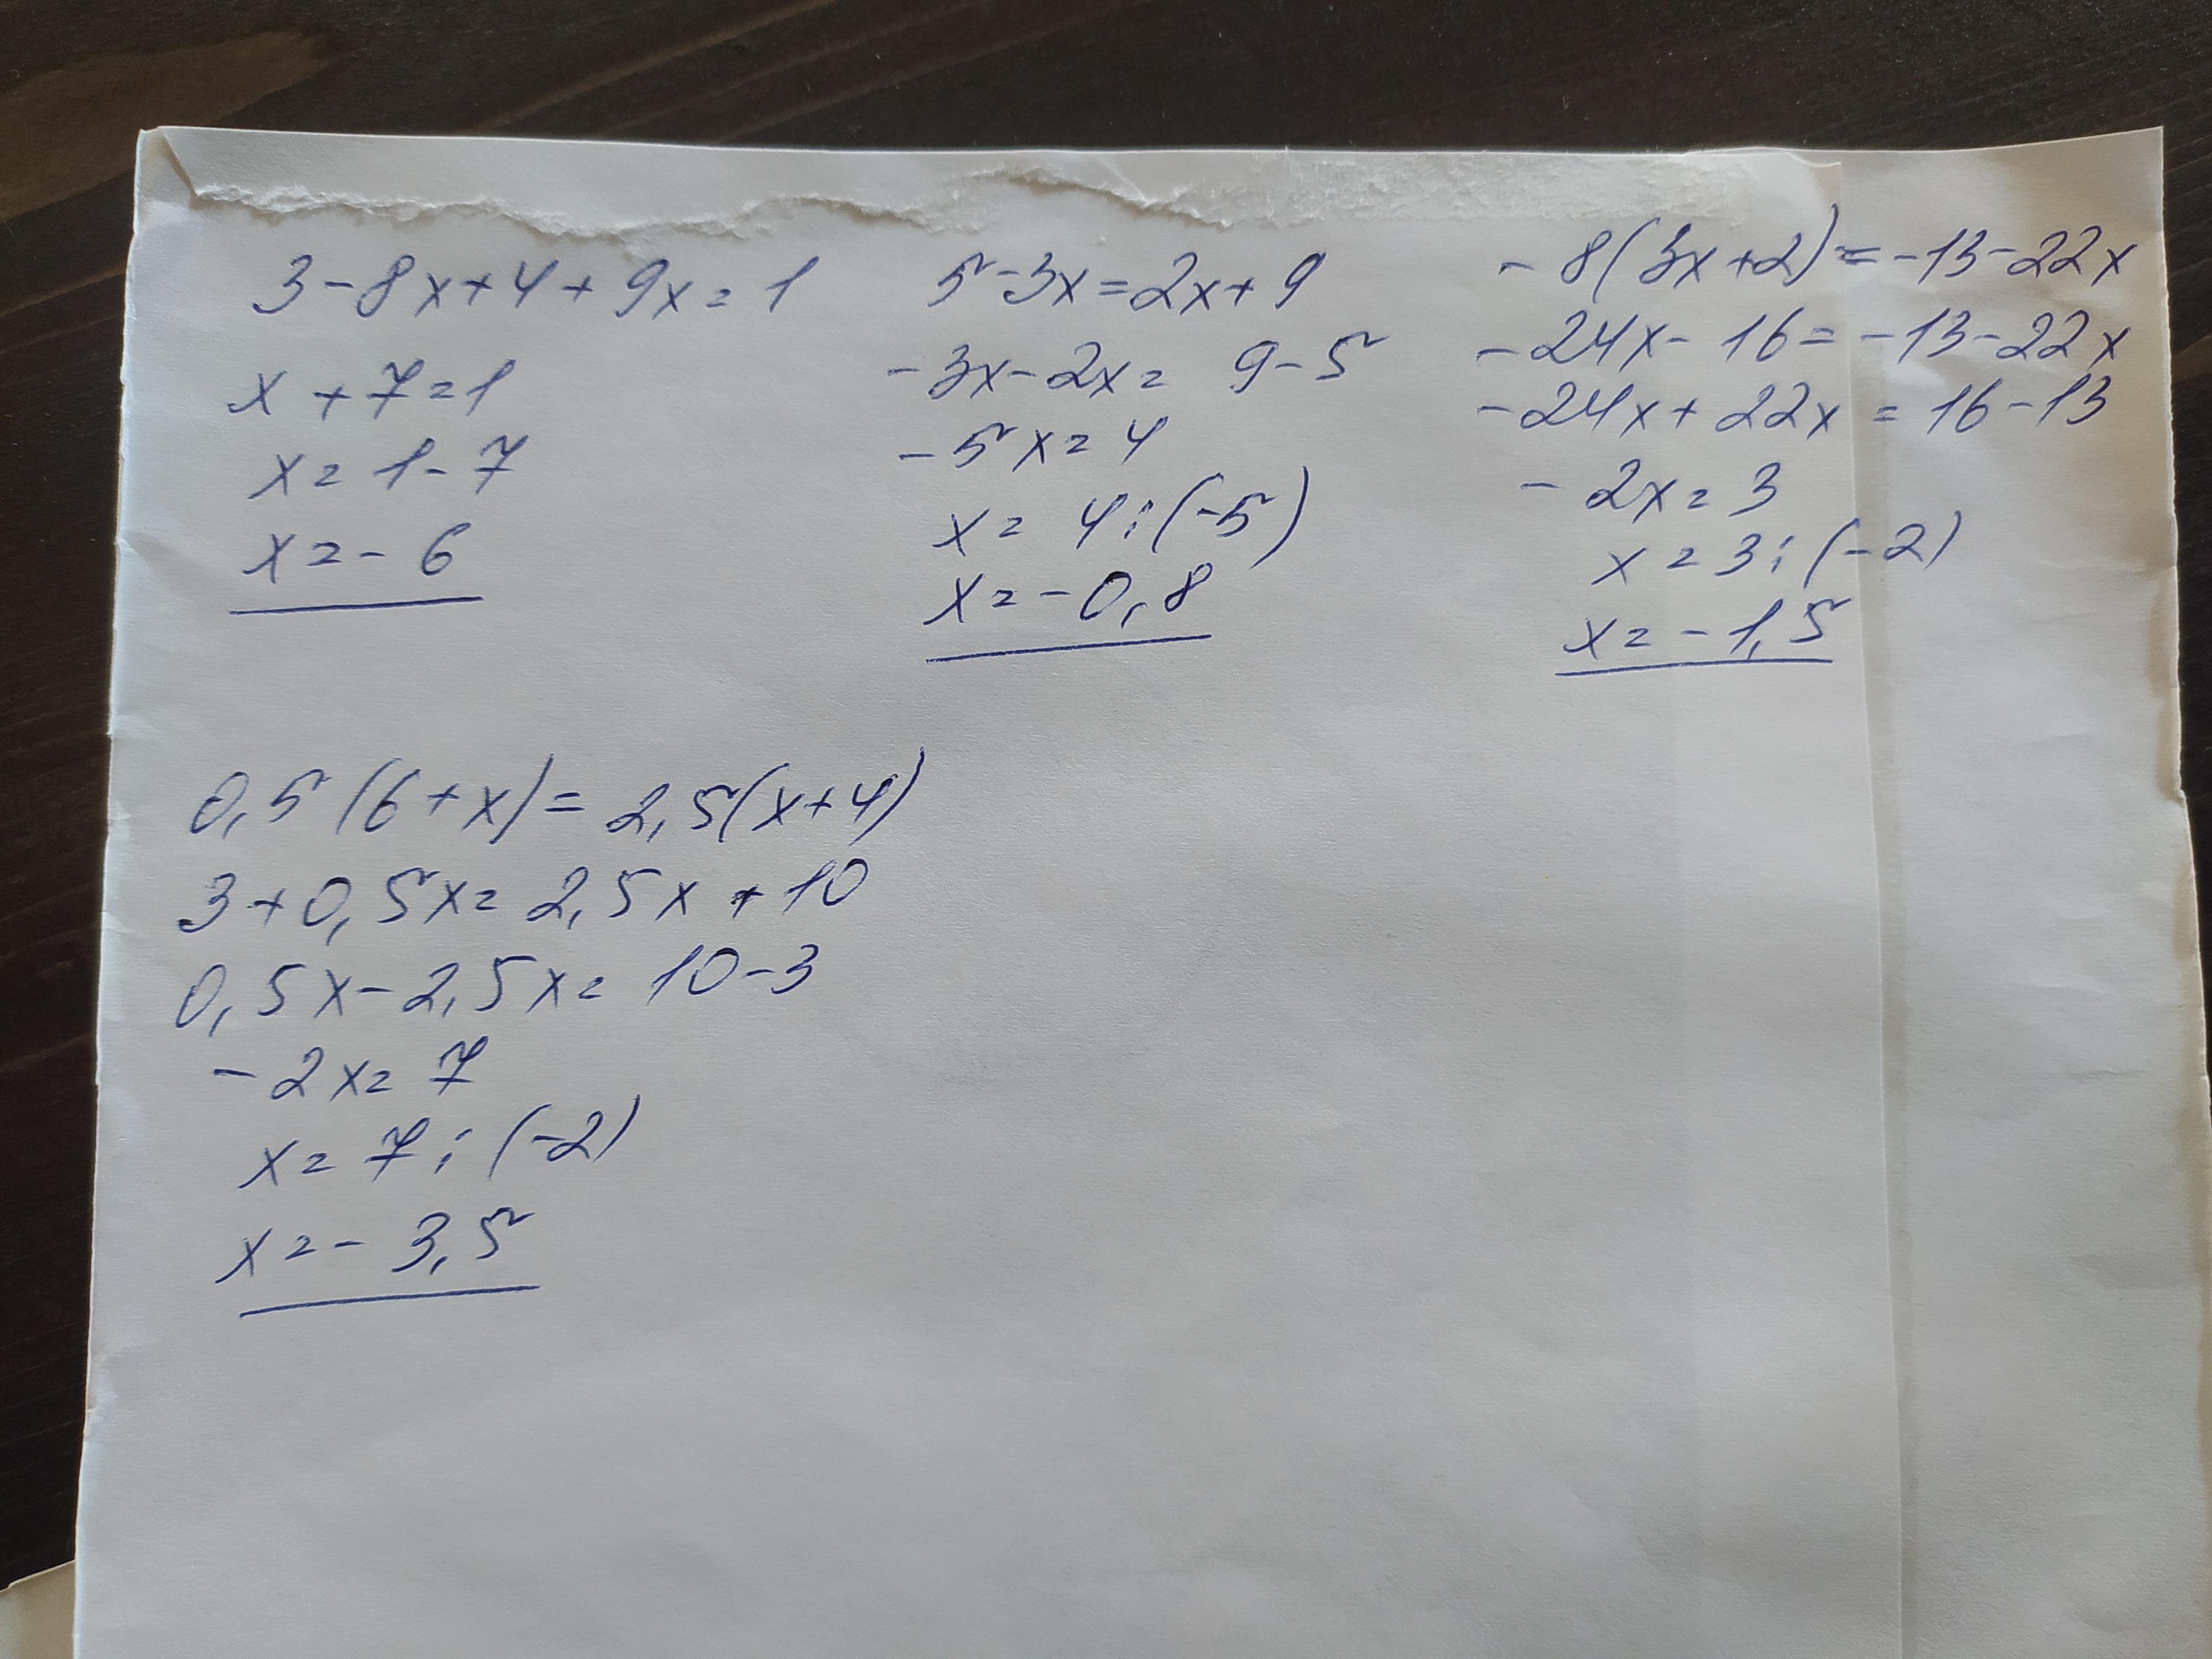 3-8x+4+9x=1
x+7=1
x=1-7
x=-6
5-3x=2x+9
-3x-2x=9-5
-5x=4
x=4:(-5)
x=-0,8
-8(3x+2)=-13-22x
-24x-16=-13-22x
-24x+22x=16-13
-2x=3
x=3:(-2)
x=-1,5
0,5(6+x)=2,5(x+4)
3+0,5x=2,5x+10
0,5x-2,5x=10-3
-2x=7
x=7:(-2)
x=-3,5